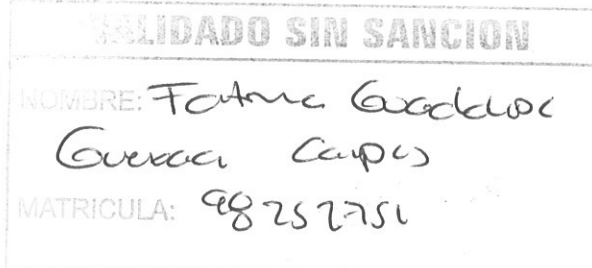 VALIDADO SIN SANCION
NOMBRE: Fatima Guadalupe
Guerra Campos
MATRICULA: 98252751